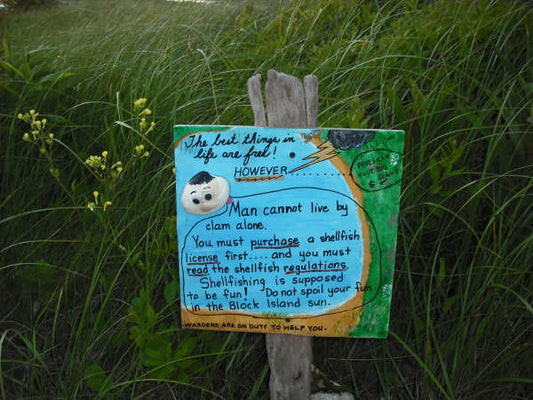 The best things in
life are free!
HOWEVER..........
Man cannot live by
clam alone.
You must purchase a shellfish
license first....and you must
read the shellfish regulations.
Shellfishing is supposed
to be fun! Do not spoil your fun
in the Block Island sun.
WARDENS ARE ON DUTY TO HELP YOU.